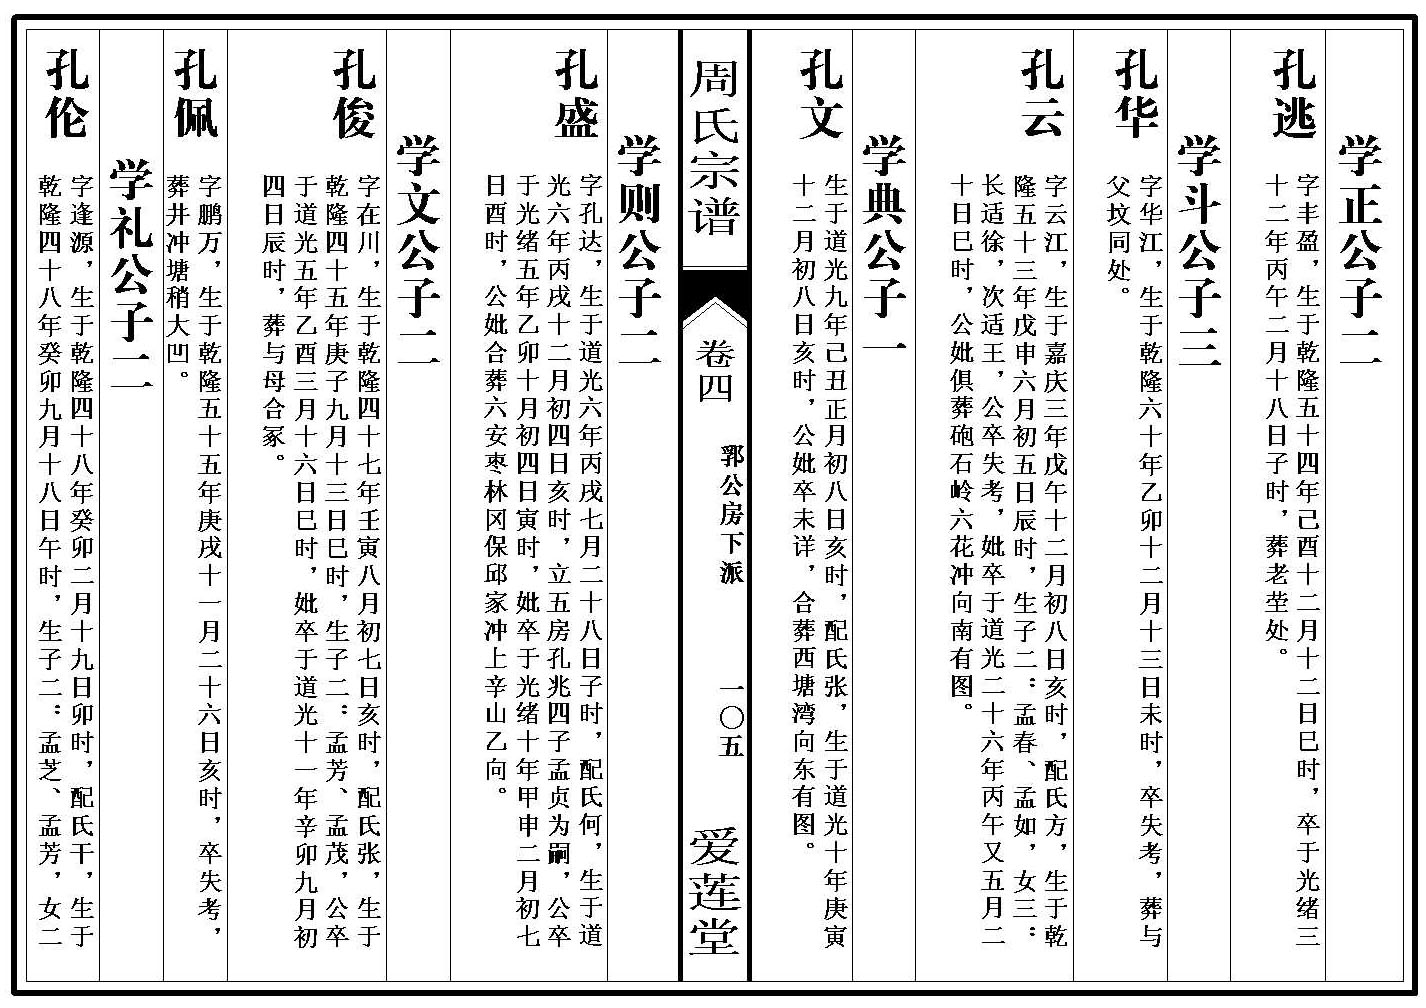 学正公子二
孔逃
字丰盈，生于乾隆五十四年己酉十二月十二日巳时，卒于光绪三
十二年丙午二月十八日子时，葬老茔处。
学斗公子三
孔华
字华江，生于乾隆六十年乙卯十二月十三日未时，卒失考，葬与
父坟同处。
孔云
字云江，生于嘉庆三年戊午十二月初八日亥时，配氏方，生于乾
隆五十三年戊申六月初五日辰时，生子二：孟春、孟如，女三：
长适徐，次适王，公卒失考，妣卒于道光二十六年丙午又五月二
十日巳时，公妣俱葬砲石岭六花冲向南有图。
学典公子一
孔文
生于道光九年己丑正月初八日亥时，配氏张，生于道光十年庚寅
十二月初八日亥时，公妣卒未详，合葬西塘湾向东有图。
周氏宗谱
卷四
郭公房下派
一〇五
爱莲堂
学则公子二
孔盛
字孔达，生于道光六年丙戌七月二十八日子时，配氏何，生于道
光六年丙戌十二月初四日亥时，立五房孔兆四子孟贞为嗣，公卒
于光绪五年乙卯十月初四日寅时，妣卒于光绪十年甲申二月初七
日酉时，公妣合葬六安枣林冈保邱家冲上辛山乙向。
学文公子二
孔俊
字在川，生于乾隆四十七年壬寅八月初七日亥时，配氏张，生于
乾隆四十五年庚子九月十三日巳时，生子二：孟芳、孟茂，公卒
于道光五年乙酉三月十六日巳时，妣卒于道光十一年辛卯九月初
四日辰时，葬与母合冢。
孔佩
字鹏万，生于乾隆五十五年庚戌十一月二十六日亥时，卒失考，
葬井冲塘稍大凹。
学礼公子二
孔伦
字逢源，生于乾隆四十八年癸卯二月十九日卯时，配氏干，生于
乾隆四十八年癸卯九月十八日午时，生子二：孟芝、孟芳，女二